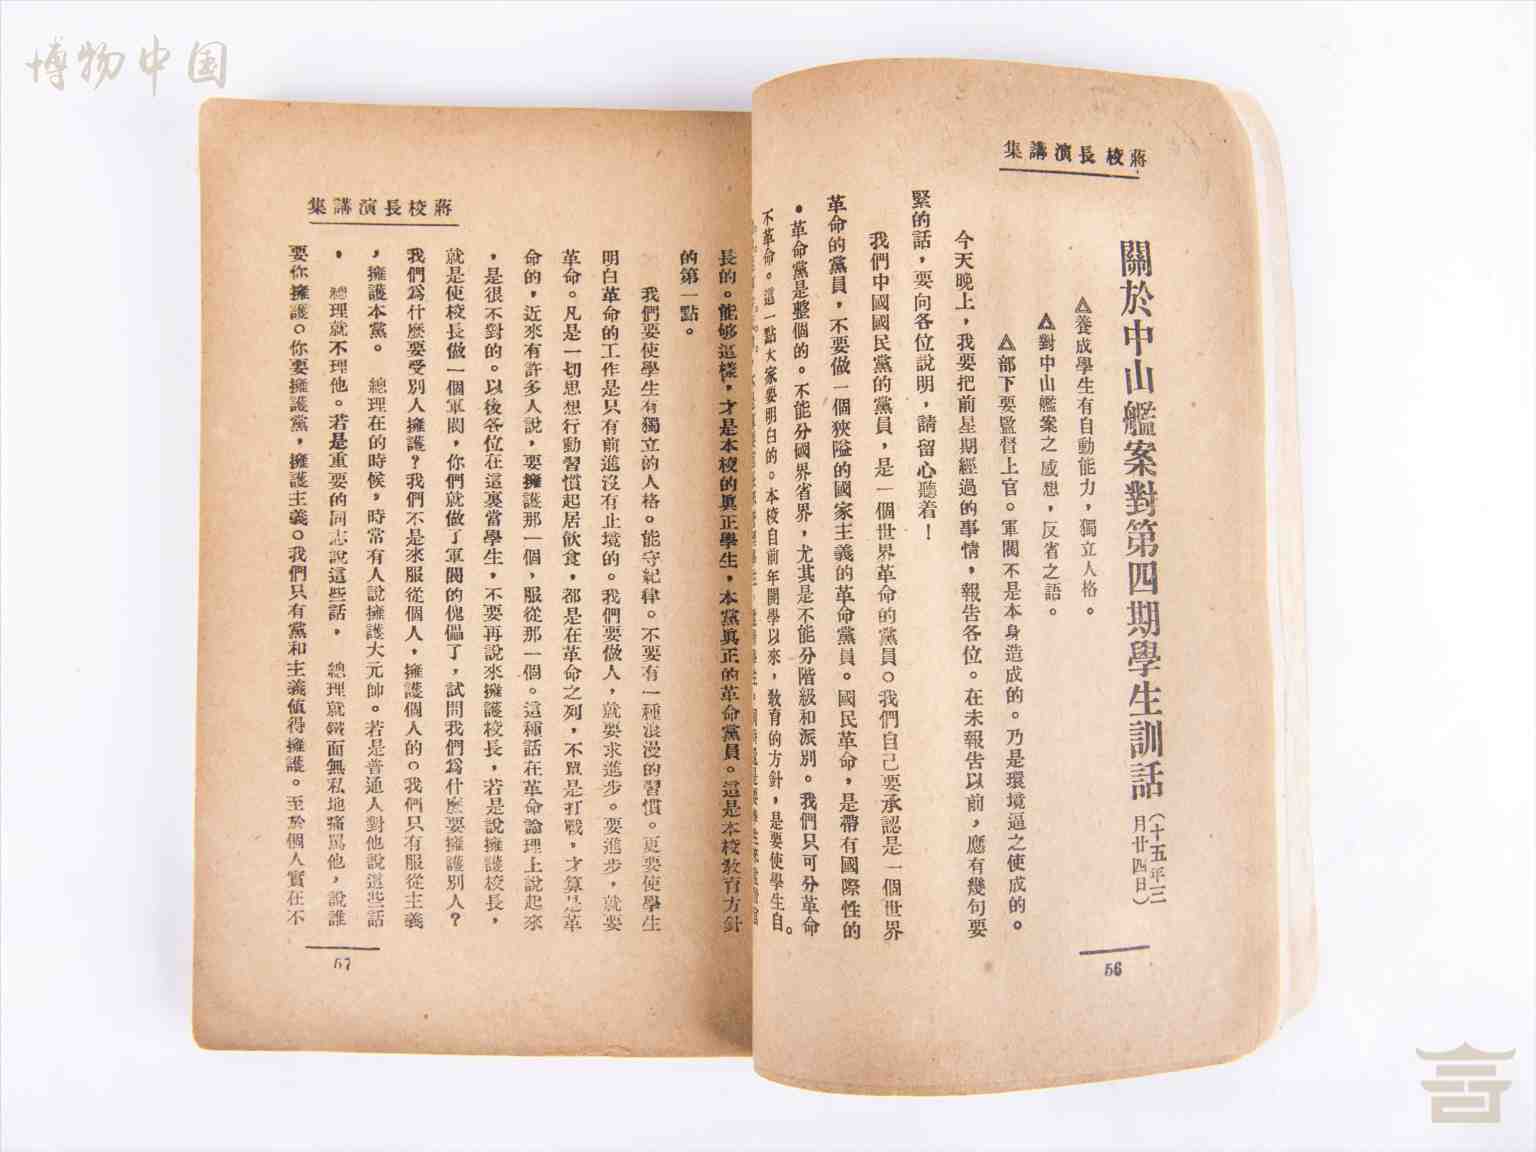 博物中国
蔣校長演講集
關於中山艦案對第四期學生訓話
(十五年三
月廿四日)
△養成學生有自動能力，獨立人格。
△對中山艦案之感想，反省之語。
△部下要監督上官。軍閥不是本身造成的。乃是環境逼之使成的。
今天晚上，我要把前星期經過的事情，報告各位。在未報告以前，應有幾句要
緊的話，要向各位說明，請留心聽着！
我們中國國民黨的黨員，是一個世界革命的黨員。我們自己要承認是一個世界
革命的黨員，不要做一個狹隘的國家主義的革命黨員。國民革命，是帶有國際性的
。革命黨是整個的。不能分國界省界，尤其是不能分階級和派別。我們只可分革命
不革命。這一點大家要明白的。本校自前年開學以來，教育的方針，是要使學生自
56
蔣校長演講集
長的。能够這樣，才是本校的真正學生，本黨真正的革命黨員。這是本校教育方針
的第一點。
我們要使學生有獨立的人格。能守紀律。不要有一種浪漫的習慣。更要使學生
明白革命的工作是只有前進沒有止境的。我們要做人，就要求進步。要進步，就要
革命。凡是一切思想行動習慣起居飲食，都是在革命之列，不單是打戰，才算是革
命的，近來有許多人說，要擁護那一個，服從那一個。這種話在革命論理上說起來
，是很不對的。以後各位在這裏當學生，不要再說來擁護校長，若是說擁護校長，
就是使校長做一個軍閥，你們就做了軍閥的傀儡了，試問我們爲什麽要擁護別人？
我們爲什麽要受別人擁護？我們不是來服從個人，擁護個人的。我們只有服從主義
，擁護本黨。　總理在的時候，時常有人說擁護大元帥。若是普通人對他說這些話
，　總理就不理他。若是重要的同志說這些話，　總理就鐵面無私地痛罵他，說誰
要你擁護。你要擁護黨，擁護主義。我們只有黨和主義值得擁護。至於個人實在不
57